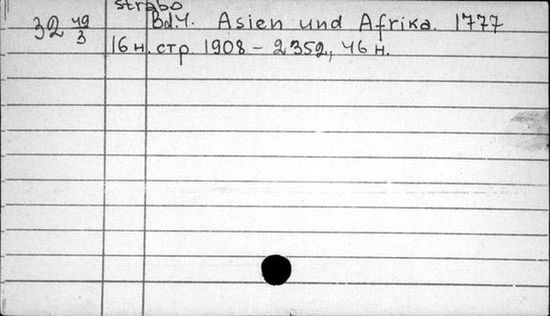 Strabo
32 49/3 Bd. 4. Asien und Afrika. 1777
16 н. стр 1908 – 2352, 46 н.